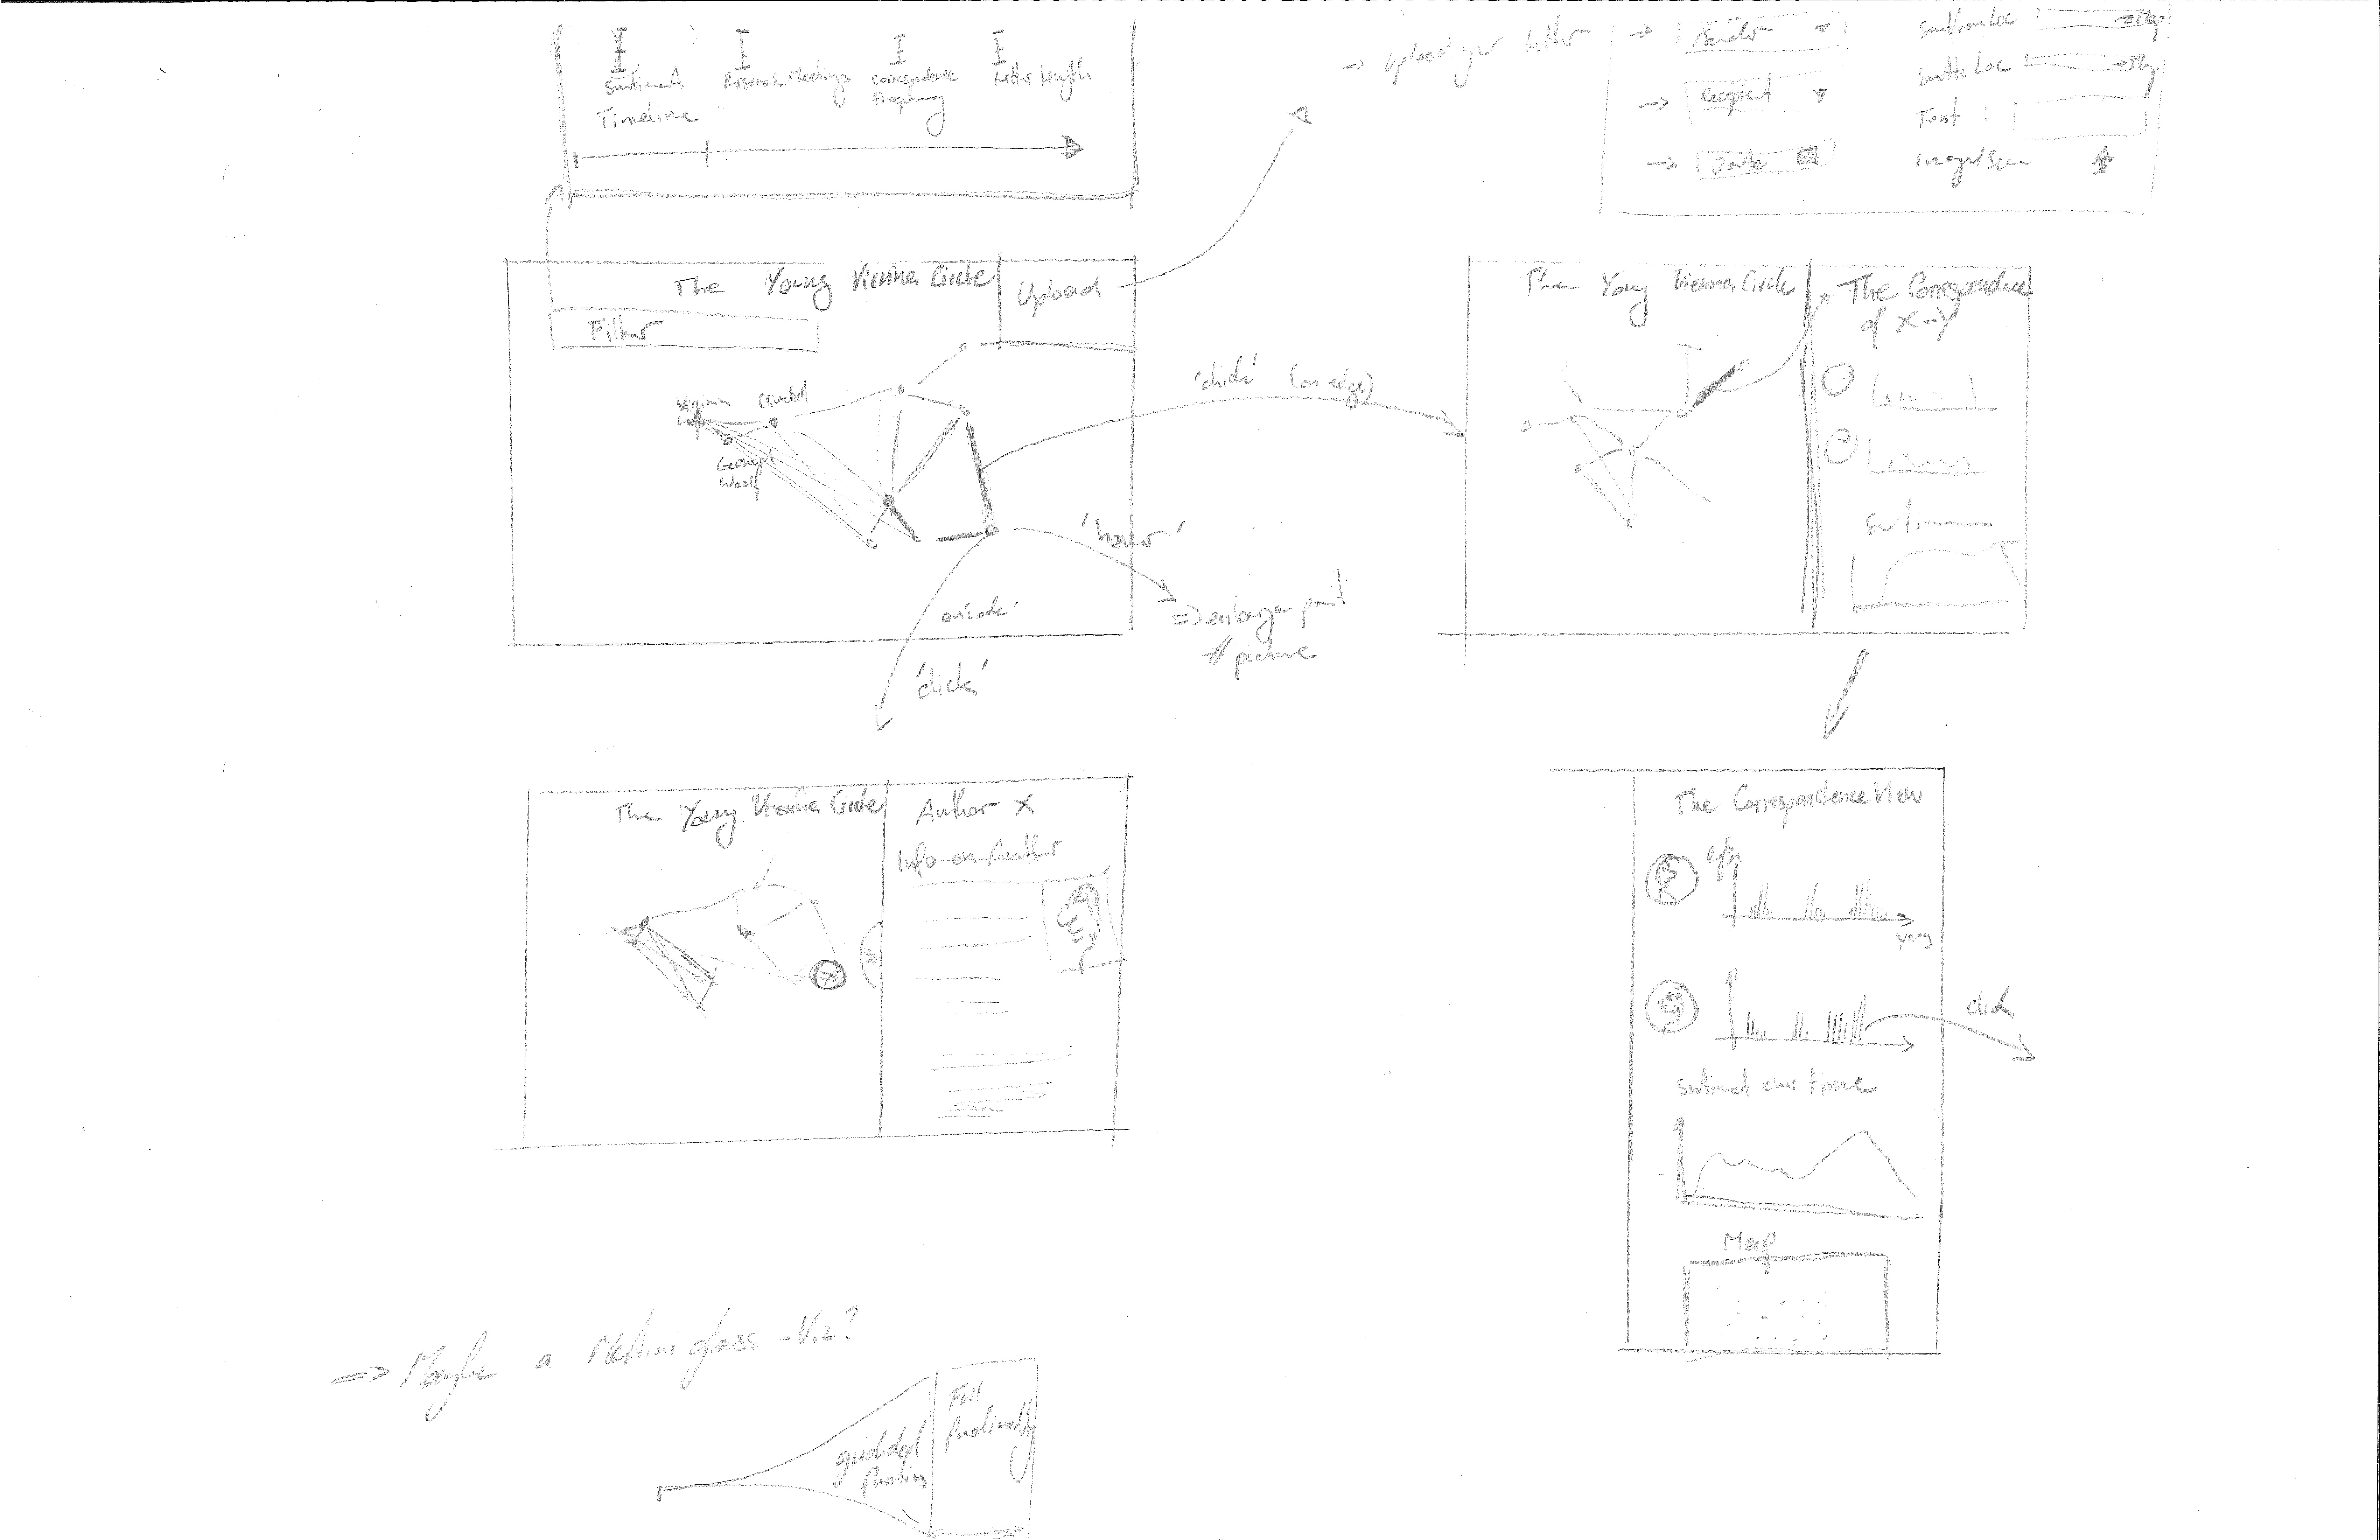 Sentiment
Personal Meetings
correspondence
frequency
Letter Length
Timeline
→ Upload your Letter
→ Sender
→ Recipient
→ Date
Sentfrom Loc → Map
Sentto Loc → Map
Text :
Image/Scan
The Young Vienna Circle
Upload
Filter
Virginia
Woolf
Clive Bell
Leonard
Woolf
'click' (on edge)
'hover'
⇒ enlarge point
picture
on 'node'
'click'
The Young Vienna Circle
The Correspondence
of X-Y
The Young Vienna Circle
Author X
Info on Author
The Correspondence View
years
click
Sentiment over time
Map
⇒ Maybe a Martini glass - Viz?
guided
Full
functionality